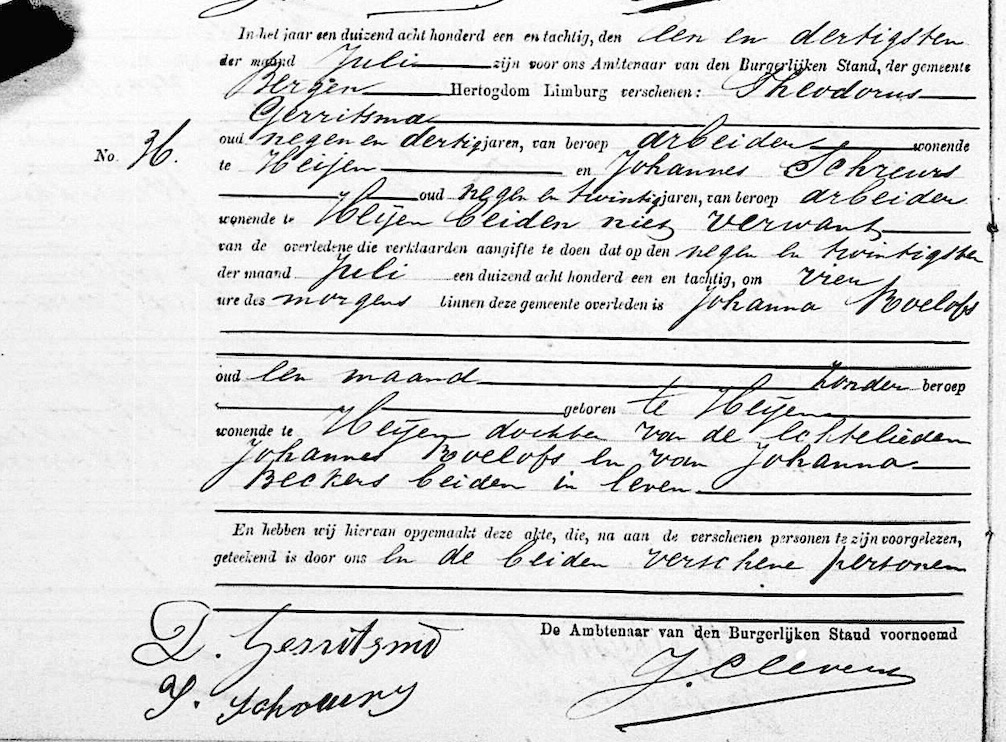 In het jaar een duizend acht honderd een en tachtig, den een en dertigsten
der maand Juli zijn voor ons Ambtenaar van den Burgerlijken Stand, der gemeente
Bergen Hertogdom Limburg verschenen: Theodorus
Gerritsma
oud negen en dertig jaren, van beroep arbeider wonende
No. 36.
te Heijen en Johannes Schreurs
oud negen en twintig jaren, van beroep arbeider
wonende te Heijen beiden niet verwant
van de overledene die verklaarden aangifte te doen dat op den negen en twintigsten
der maand Juli een duizend acht honderd een en tachtig, om vier
ure des morgens binnen deze gemeente overleden is Johanna Roelofs
oud een maand zonder beroep
geboren te Heijen
wonende te Heijen dochter van de echtelieden
Johannes Roelofs en van Johanna
Beckers beiden in leven
En hebben wij hiervan opgemaakt deze akte, die, na aan de verschenen personen te zijn voorgelezen,
geteekend is door ons en de beiden verschene personen
De Ambtenaar van den Burgerlijken Stand voornoemd
D. Gerritsma
J. Clevens